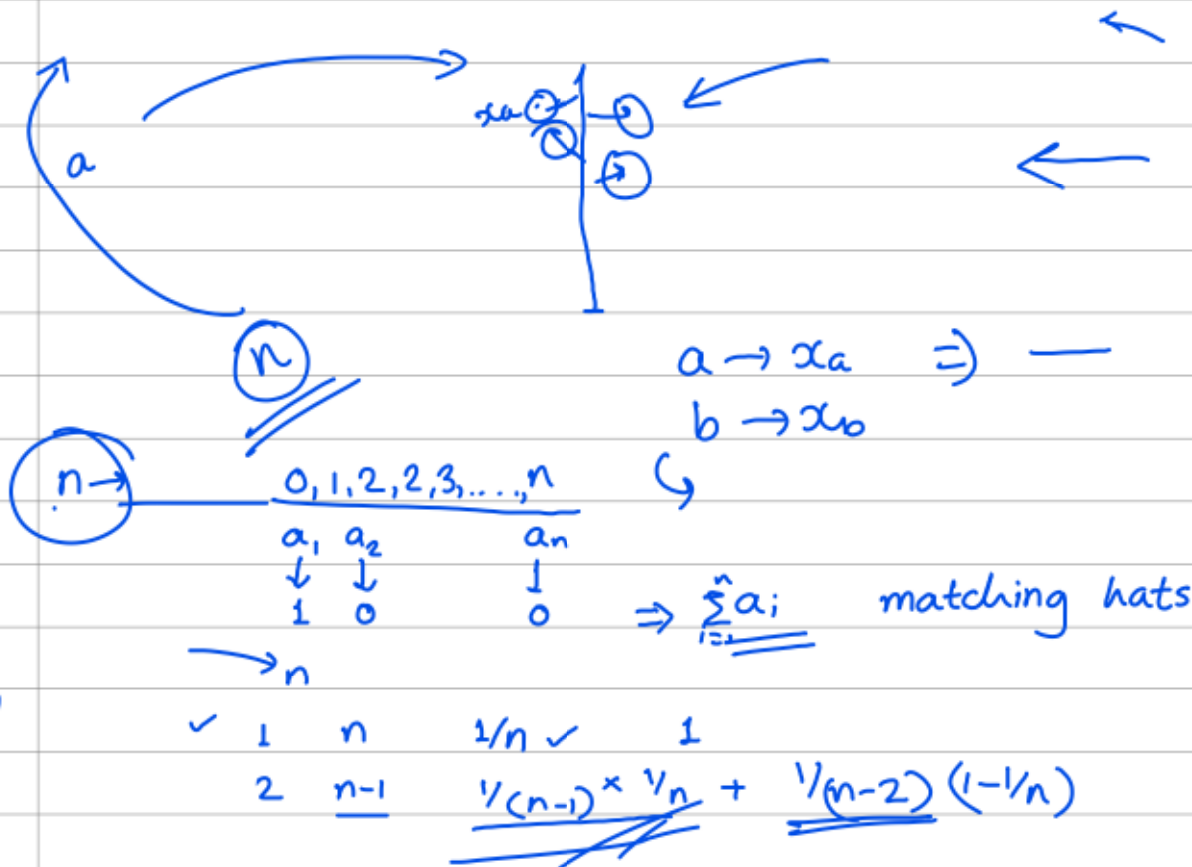 xa
a
n
a → xa ⇒ —
b → xb
n→ 0, 1, 2, 2, 3, ...., n
a₁ a₂ aₙ
↓ ↓ ↓
1 0 0 ⇒ Σᵢ₌₁ⁿ aᵢ matching hats
→ n
✓ 1 n 1/n ✓ 1
2 n-1 1/(n-1) × 1/n + 1/(n-2) (1-1/n)